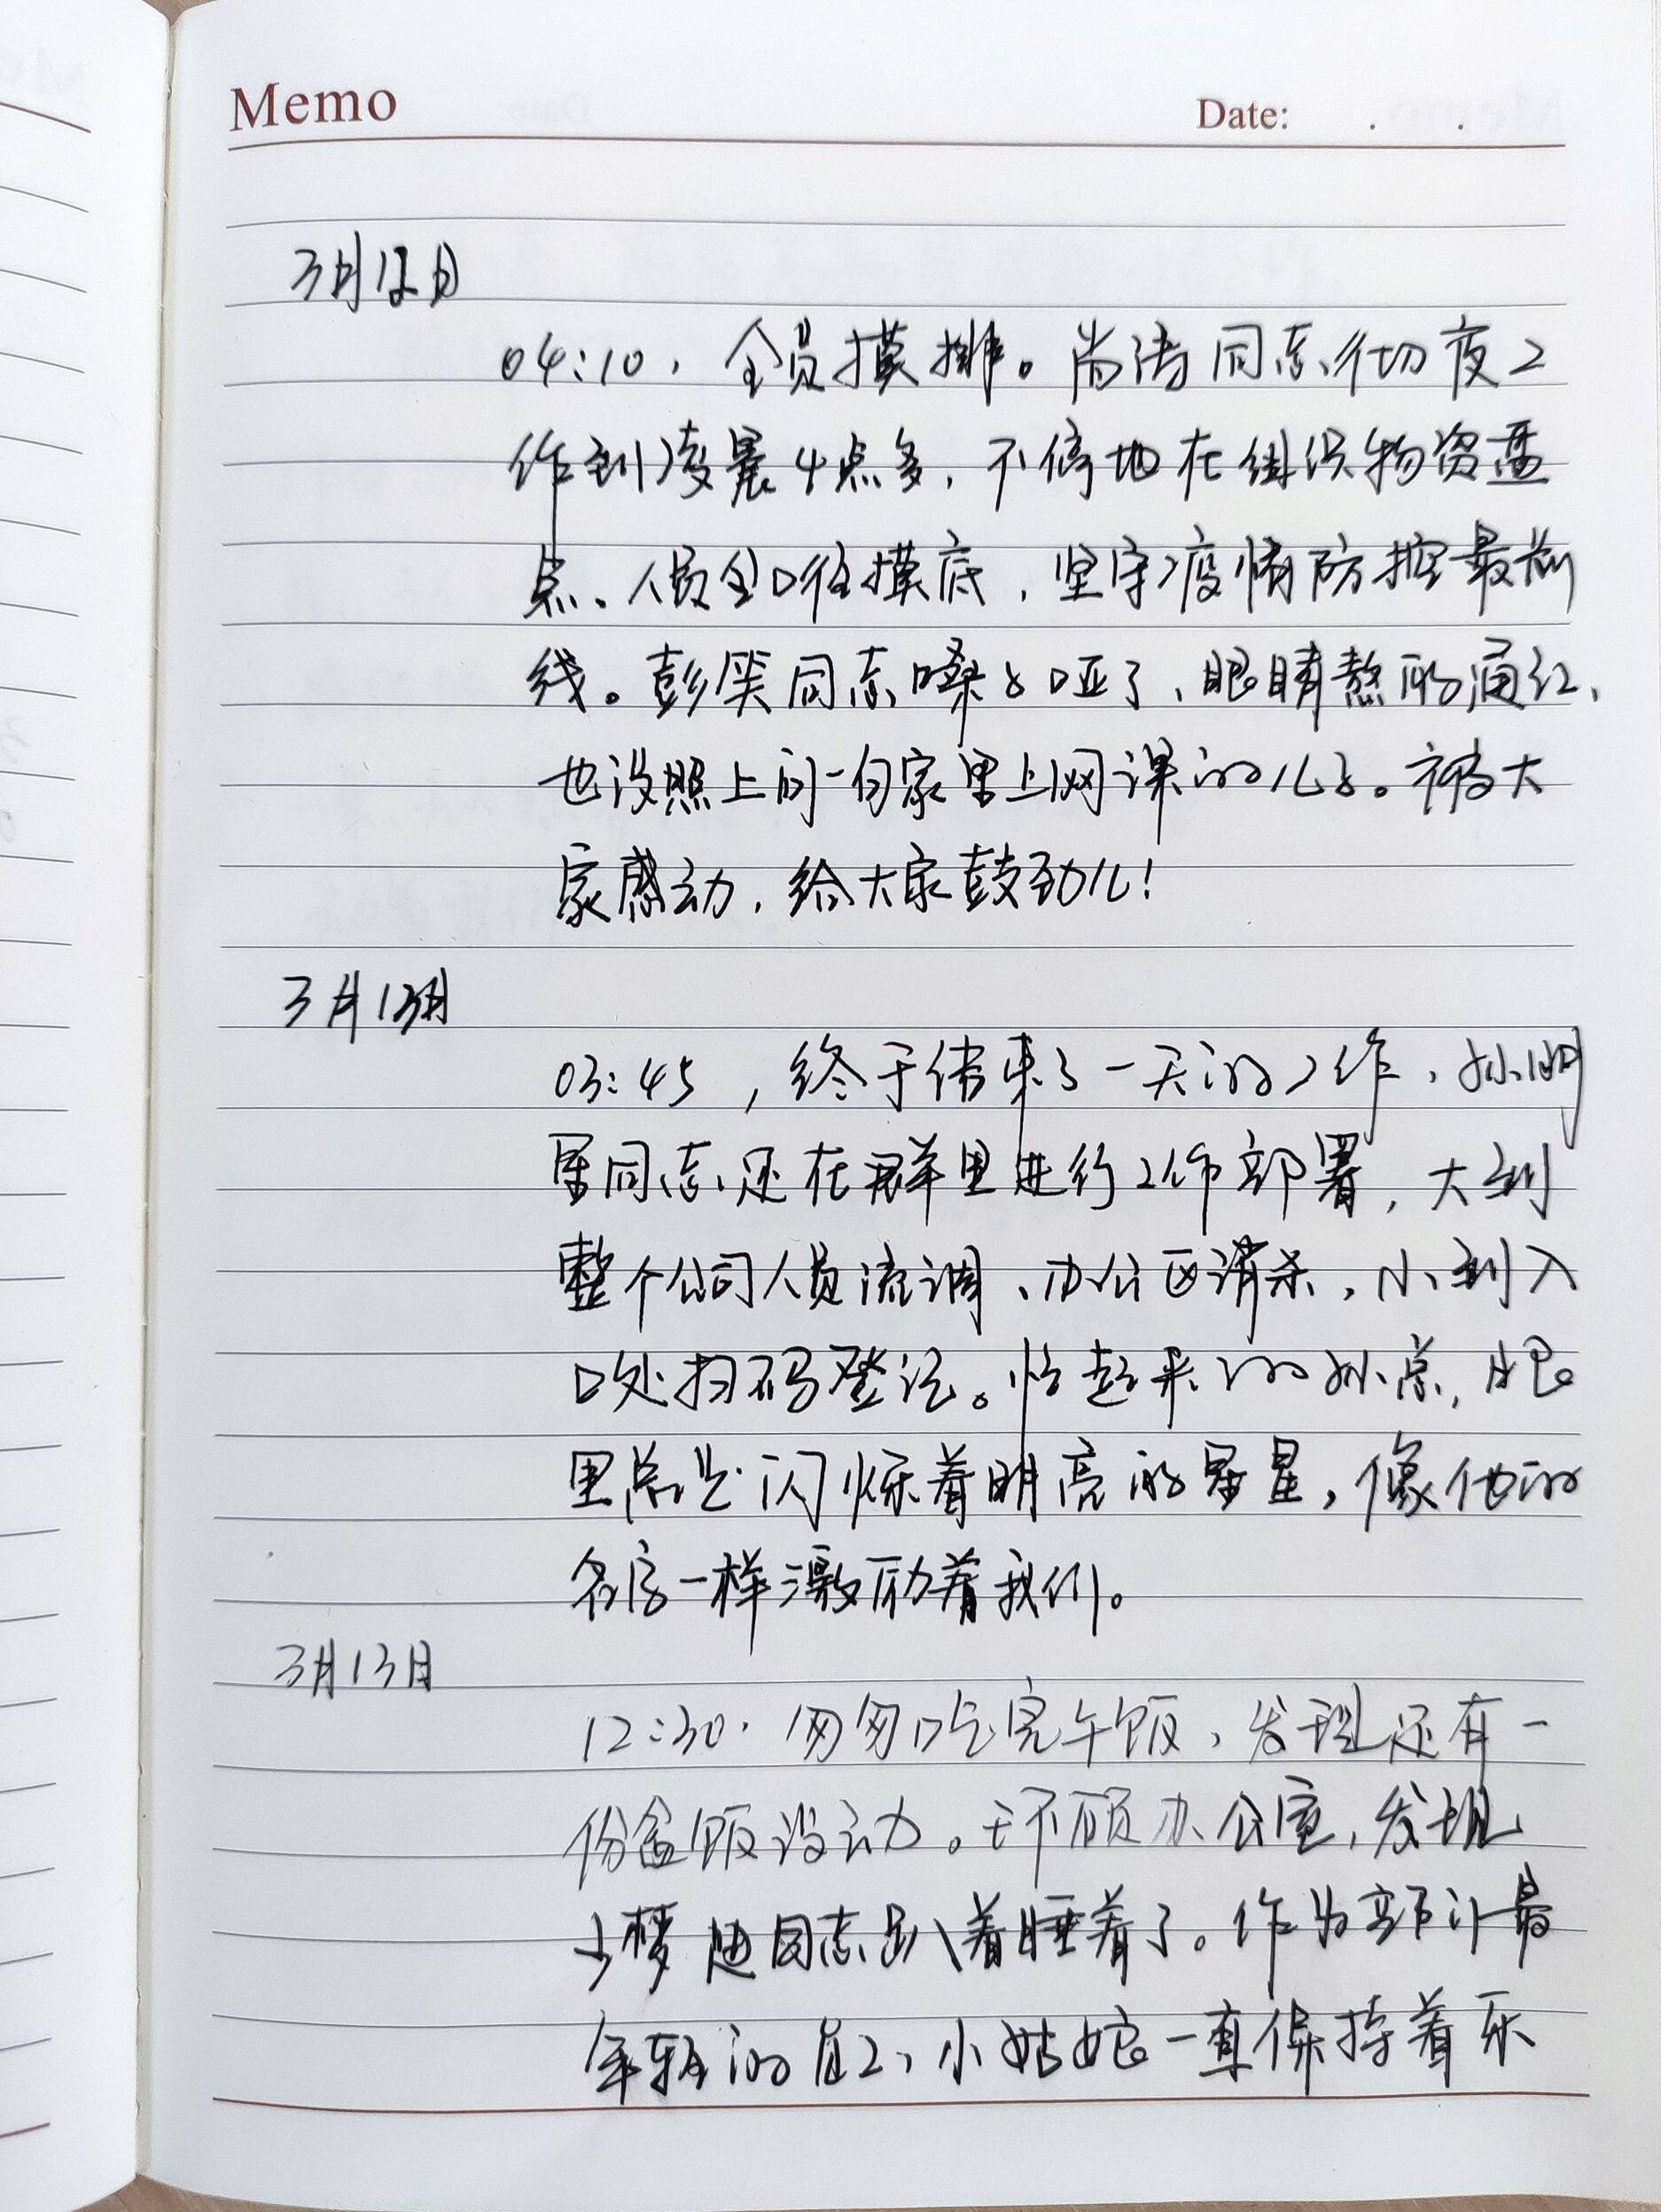 Memo Date: . .
3月12日
04:10，全员摸排。尚涛同志彻夜工
作到凌晨4点多，不停地在组织物资盘
点、人员全口径摸底，坚守疫情防控最前
线。彭笑同志嗓子哑了、眼睛熬的通红、
也没照上问一句家里上网课的儿子。被大
家感动，给大家鼓劲儿！
3月13日
03:45，终于结束了一天的工作，孙明
星同志还在群里进行工作部署，大到
整个公司人员流调、办公区消杀，小到入
口处扫码登记。忙起来的孙总，眼
里总是闪烁着明亮的星星，像他的
名字一样激励着我们。
3月13日
12:30，匆匆吃完午饭，发现还有一
份盒饭没动。环顾办公室，发现
梦迪同志趴着睡着了。作为部门最
年轻的员工，小姑娘一直保持着乐